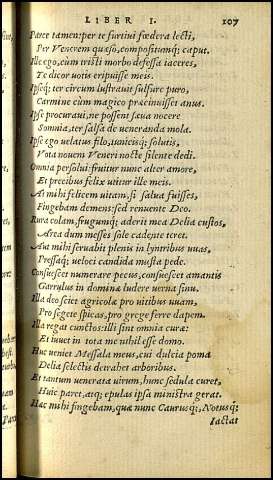 LIBER I. 107
Parce tamen: per te furtiui fœdera lecti,
Per Venerem quæso, compositumq; caput.
Ille ego, cùm tristi morbo defessa iaceres,
Te dicor uotis eripuisse meis.
Ipseq; ter circum lustraui sulfure puro,
Carmine cùm magico præcinuisset anus.
Ipse procuraui, ne possent sæua nocere
Somnia, ter salsa de ueneranda mola.
Ipse ego uelatus filo, tunicisq; solutis,
Vota nouem Veneri nocte silente dedi.
Omnia persolui: fruitur nunc alter amore,
Et precibus felix utitur ille meis.
At mihi felicem uitam, si salua fuisses,
Fingebam demens: sed renuente Deo.
Rura colam, frugumq; aderit mea Delia custos,
Area dum messes sole cadente teret.
Aut mihi seruabit plenis in lyntribus uuas,
Pressaq; ueloci candida musta pede.
Consuescet numerare pecus, consuescet amantis
Garrulus in dominæ ludere uerna sinu.
Illa deo sciet agricolæ pro uitibus uuam,
Pro segete spicas, pro grege ferre dapem.
Illa regat cunctos: illi sint omnia curæ:
Et iuuet in tota me nihil esse domo.
Huc ueniet Messala meus, cui dulcia poma
Delia selectis detrahet arboribus.
Et tantum uenerata uirum, hunc sedula curet,
Huic paret, atq; epulas ipsa ministra gerat.
Hæc mihi fingebam, quæ nunc Eurusq;, Notusq;
Iactat